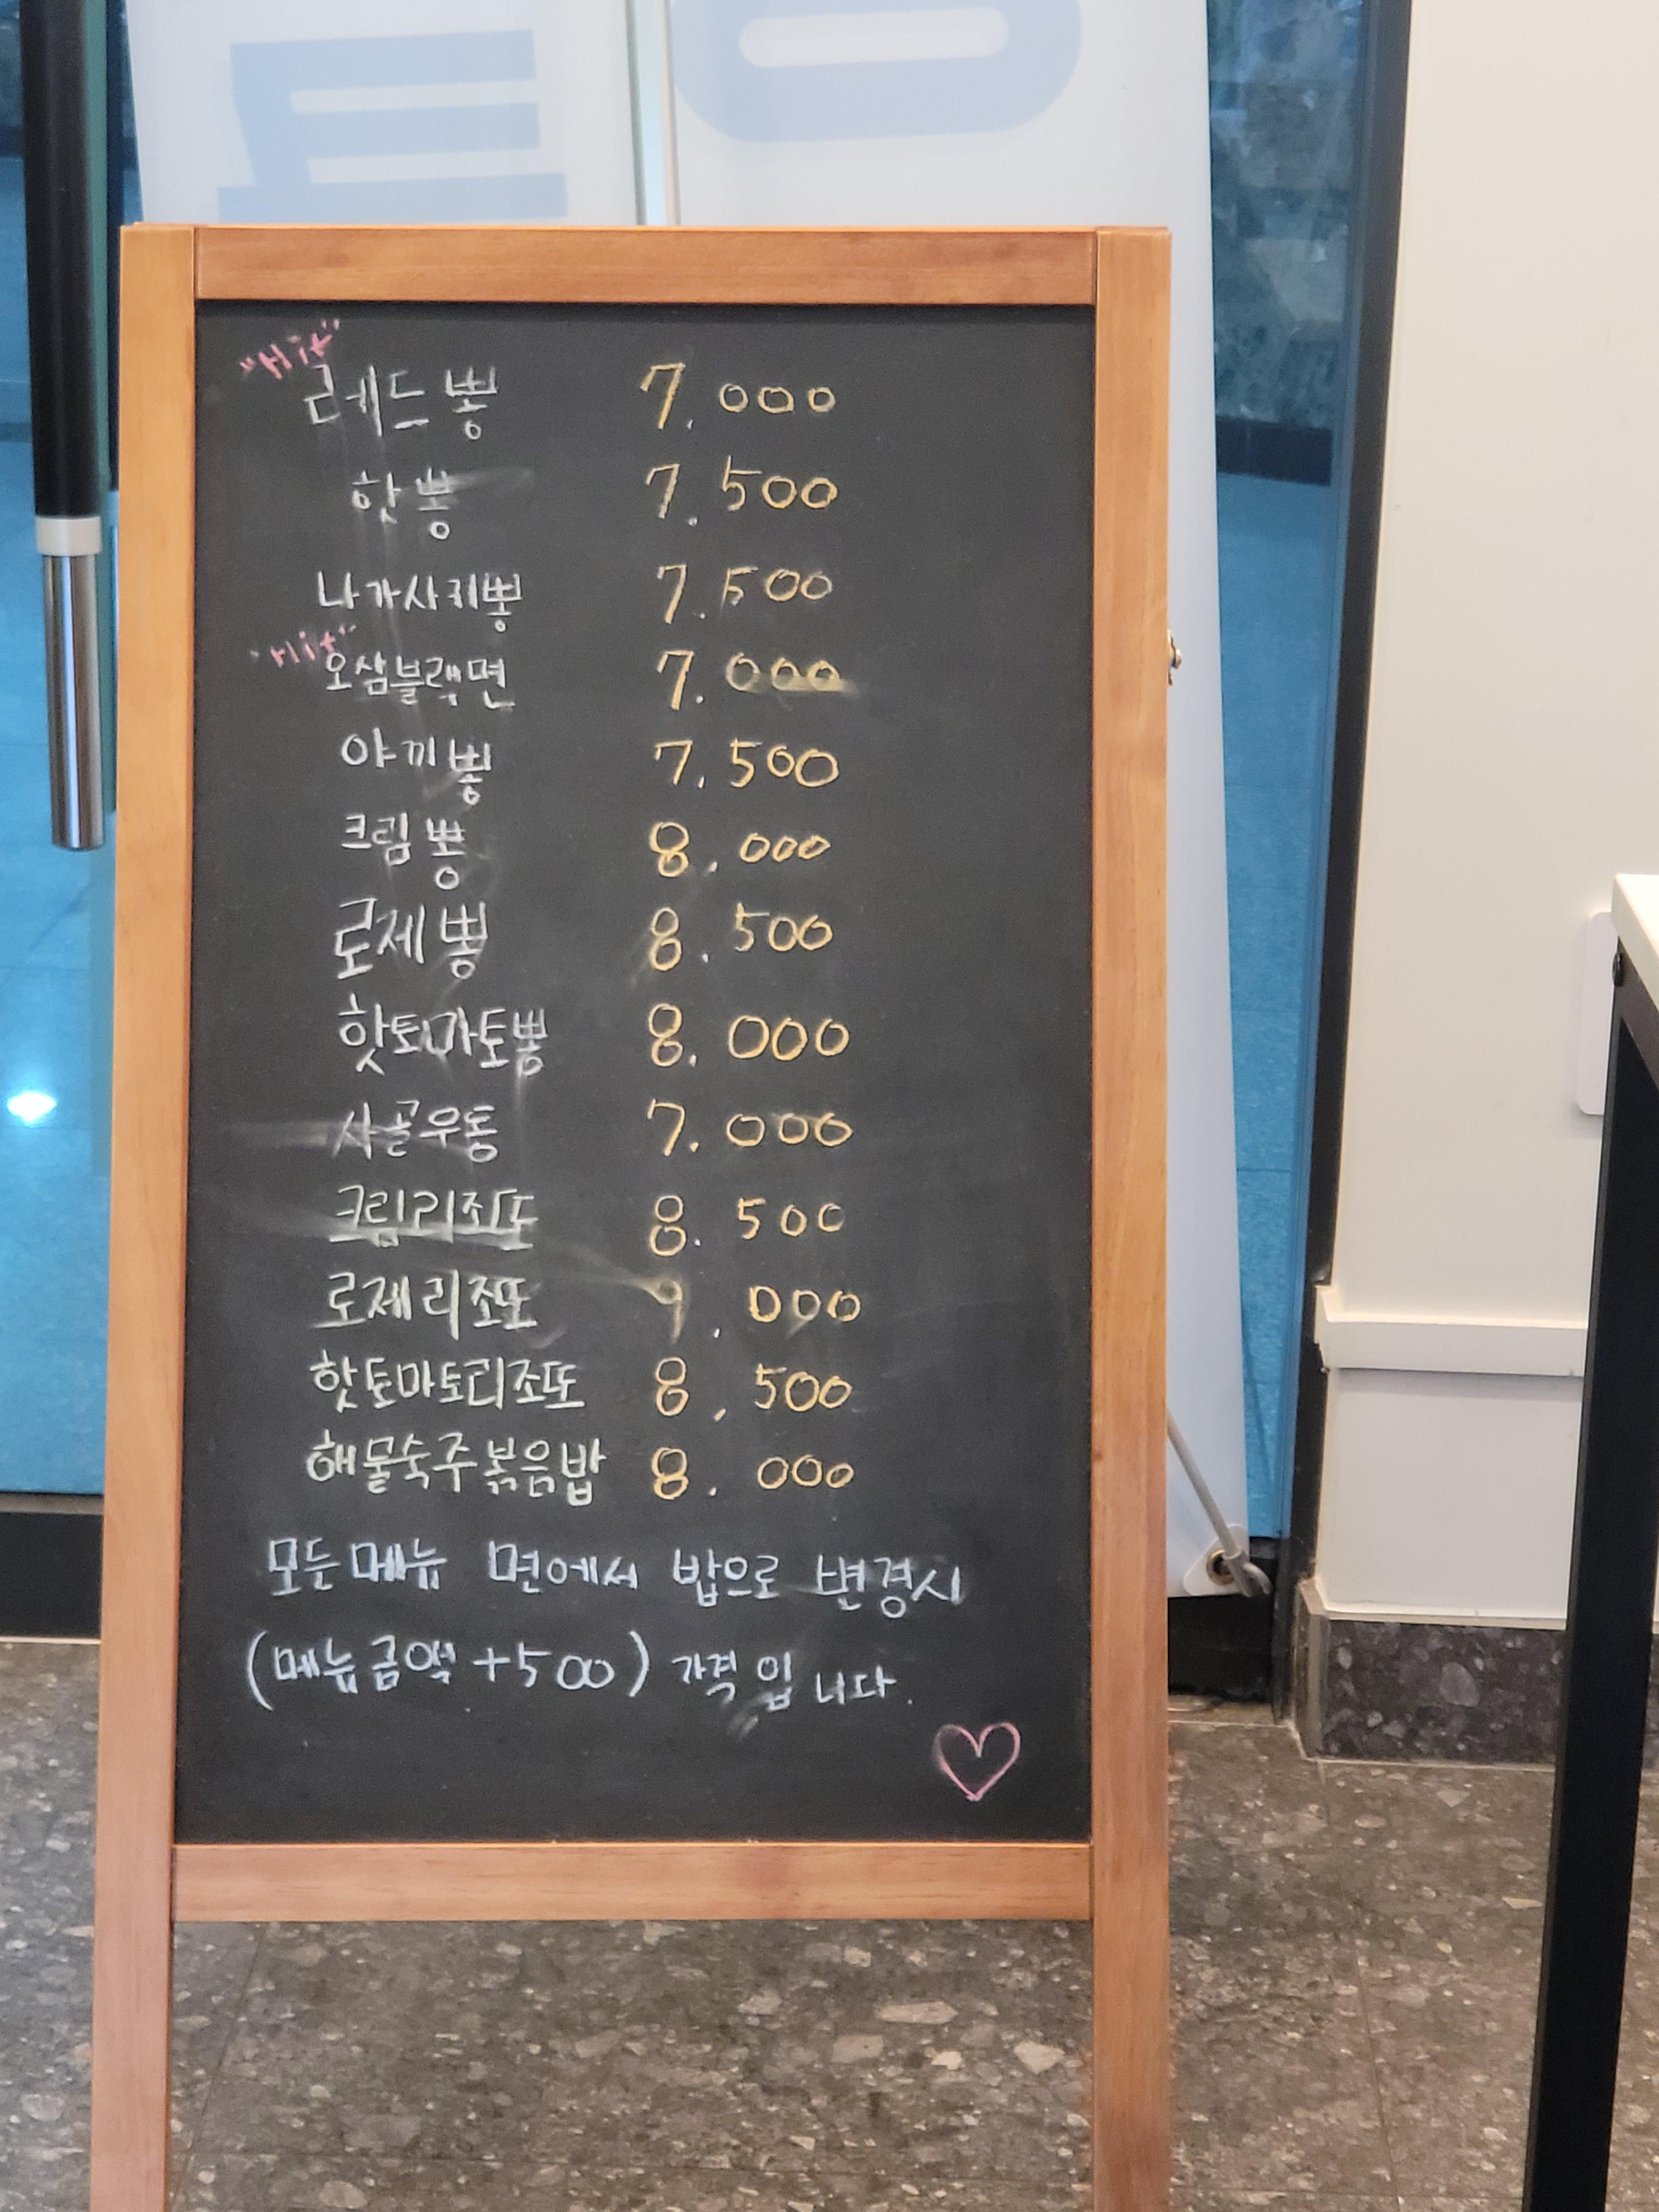 "Hit"
레드뽕 7.000
핫뽕 7.500
나가사끼뽕 7.500
"Hit"
오삼블랙면 7.000
야끼뽕 7.500
크림뽕 8.000
로제뽕 8.500
핫토마토뽕 8.000
사골우동 7.000
크림리조또 8.500
로제리조또 9.000
핫토마토리조또 8.500
해물숙주볶음밥 8.000
모든메뉴 면에서 밥으로 변경시
(메뉴금액+500) 가격입니다.